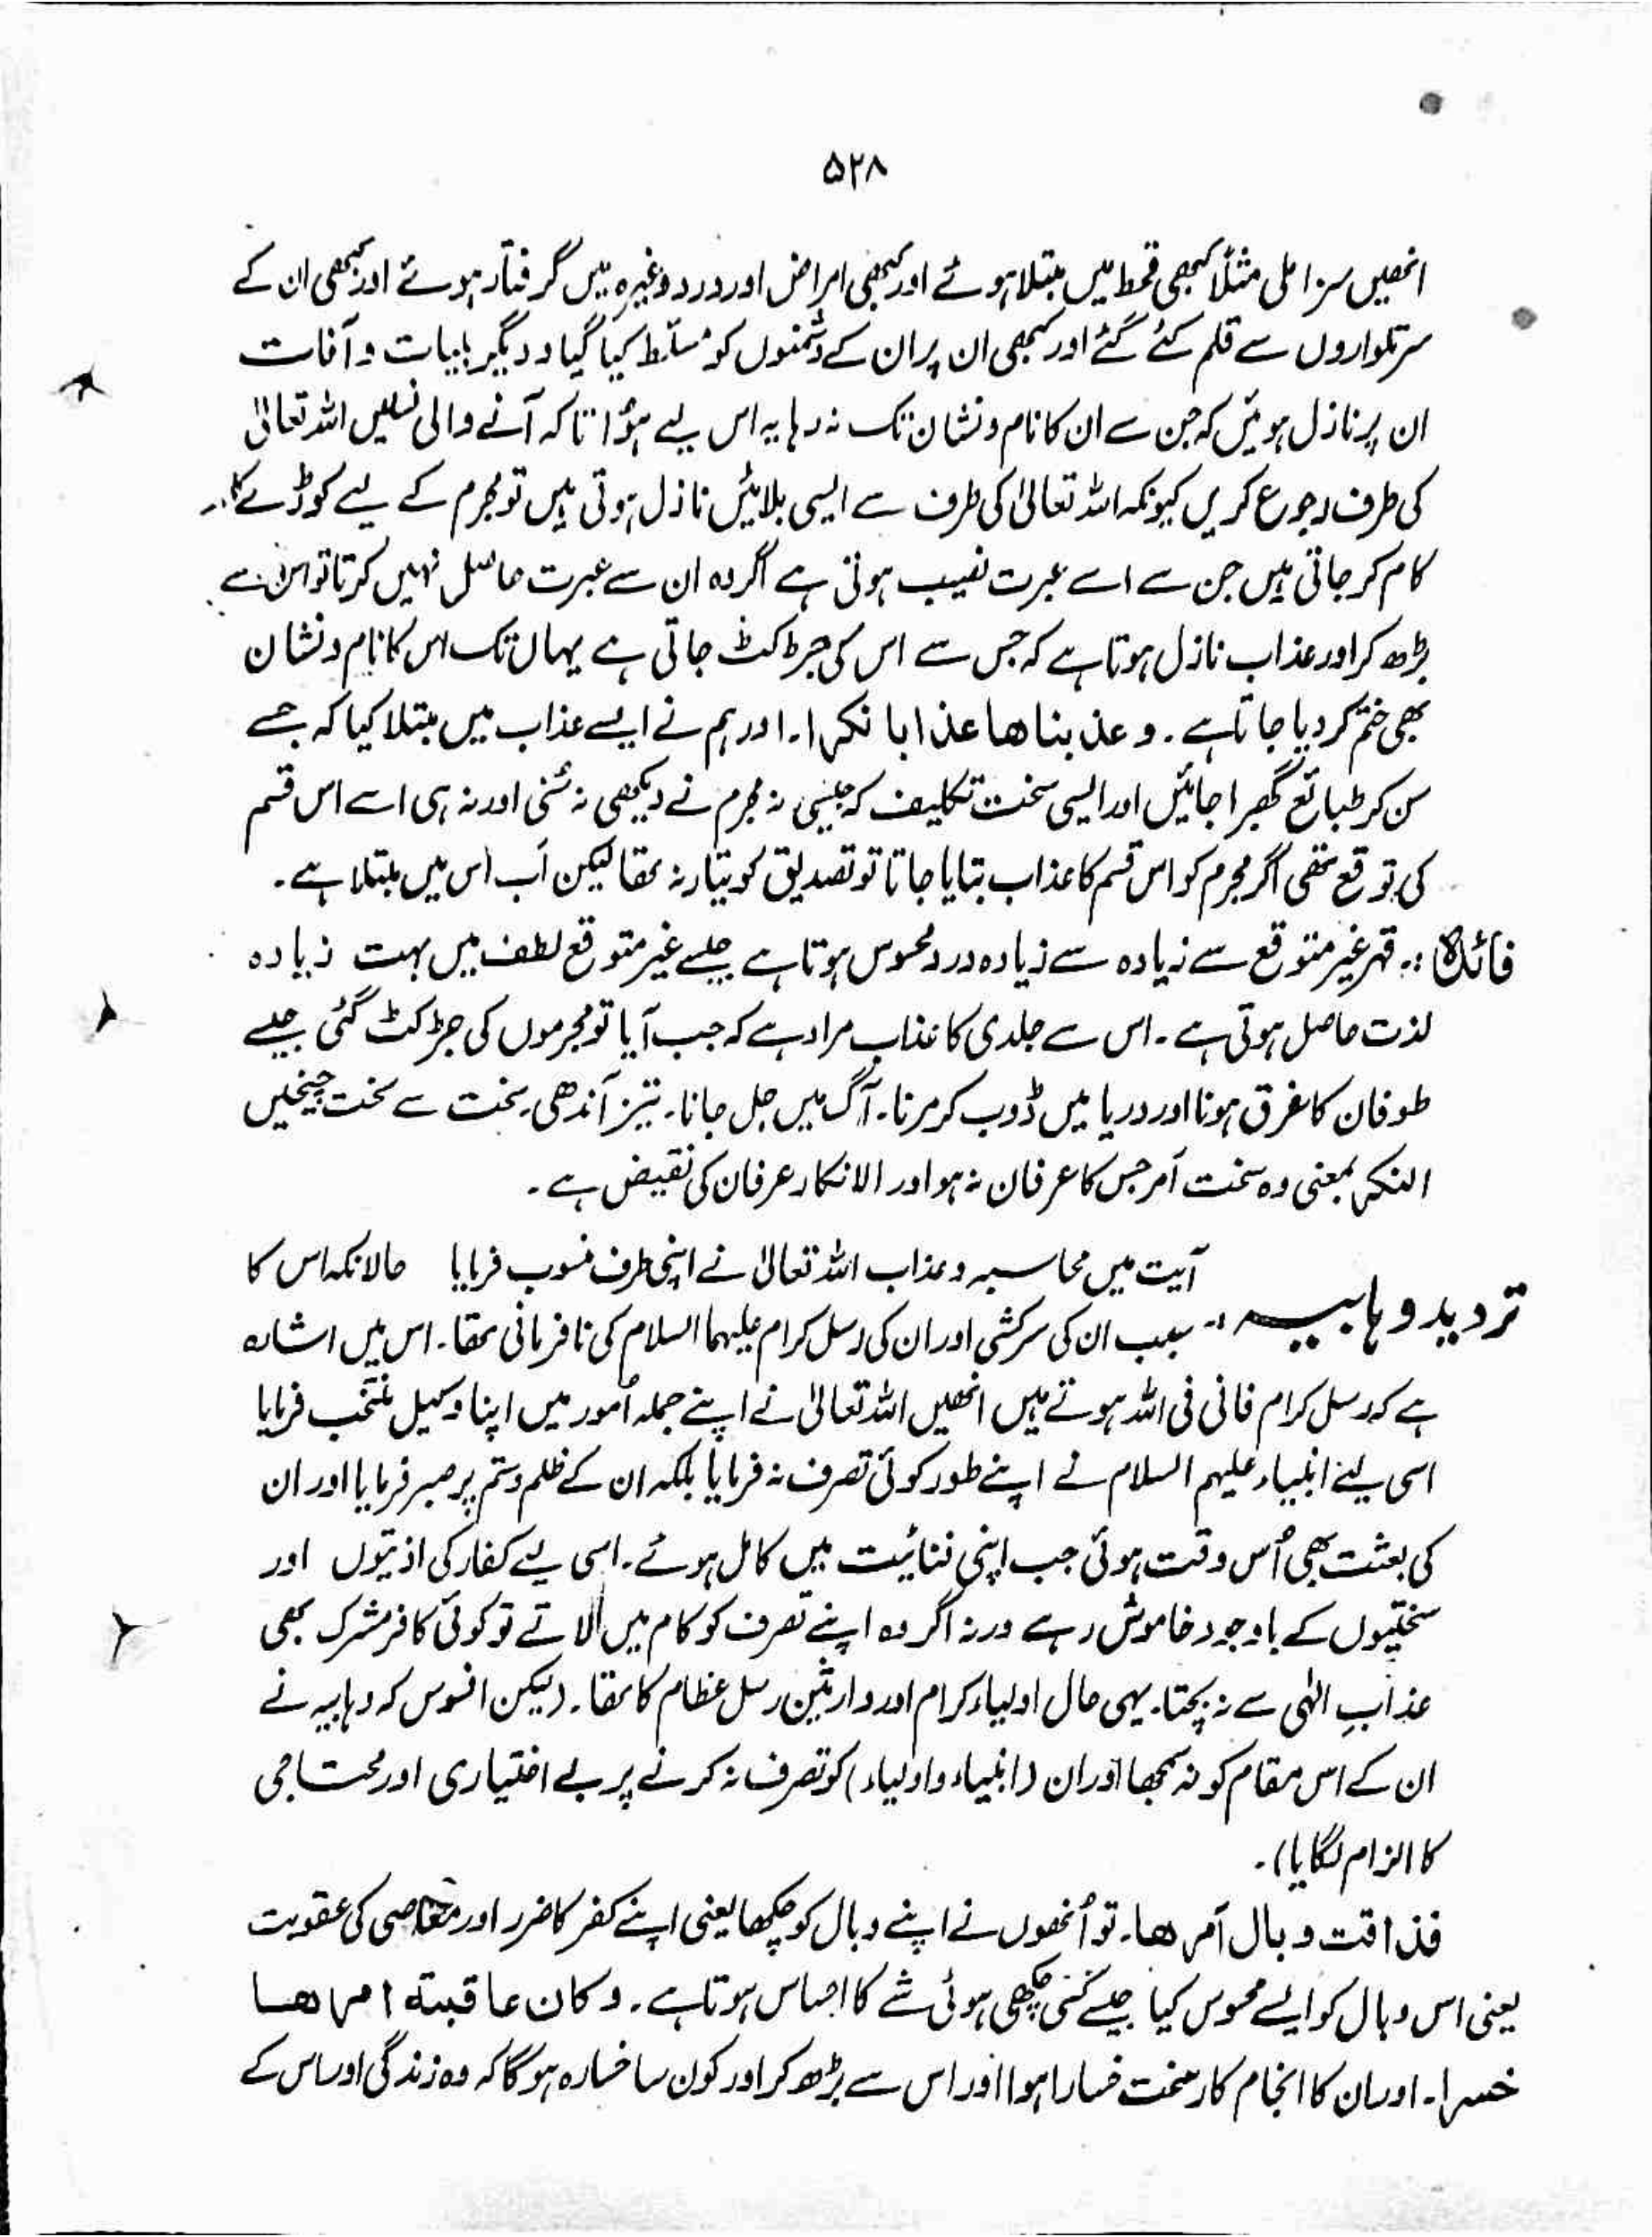 ۵۲۸
انھیں سزا ملی مثلًا کبھی قحط میں مبتلا ہوئے اور کبھی امراض اور درد وغیرہ میں گرفتار ہوئے اور کبھی ان کے
سر تلواروں سے قلم کئے گئے اور کبھی ان پر ان کے دشمنوں کو مسلّط کیا گیا و دیگر بلیات و آفات
ان پر نازل ہوئیں کہ جن سے ان کا نام و نشان تک نہ رہا یہ اس لیے ہؤا تاکہ آنے والی نسلیں اللہ تعالیٰ
کی طرف رجوع کریں کیونکہ اللہ تعالیٰ کی طرف سے ایسی بلائیں نازل ہوتی ہیں تو مجرم کے لیے کوڑے کا
کام کر جاتی ہیں جن سے اسے عبرت نصیب ہوتی ہے اگر وہ ان سے عبرت حاصل نہیں کرتا تو اس سے
بڑھ کر اور عذاب نازل ہوتا ہے کہ جس سے اس کی جڑ کٹ جاتی ہے یہاں تک اس کا نام و نشان
بھی ختم کر دیا جاتا ہے۔ و عذبناھا عذابا نکرا۔ اور ہم نے ایسے عذاب میں مبتلا کیا کہ جسے
سن کر طبائع گھبرا جائیں اور ایسی سخت تکلیف کہ جیسی نہ مجرم نے دیکھی نہ سُنی اور نہ ہی اسے اس قسم
کی توقع تھی اگر مجرم کو اس قسم کا عذاب بتایا جاتا تو تصدیق کو تیار نہ تھا لیکن اَب اس میں مبتلا ہے۔
فائدہ :۔ قہر غیر متوقع سے زیادہ سے زیادہ درد محسوس ہوتا ہے جیسے غیر متوقع لطف میں بہت زیادہ
لذت حاصل ہوتی ہے۔ اس سے جلدی کا عذاب مراد ہے کہ جب آیا تو مجرموں کی جڑ کٹ گئی جیسے
طوفان کا غرق ہونا اور دریا میں ڈوب کر مرنا۔ آگ میں جل جانا۔ تیز آندھی۔ سخت سے سخت چیخیں
النکر بمعنی وہ سخت اَمر جس کا عرفان نہ ہو اور الانکار عرفان کی نقیض ہے۔
آیت میں محاسبہ و عذاب اللہ تعالیٰ نے اپنی طرف منسوب فرمایا حالانکہ اس کا
تردید وہابیہ :۔ سبب ان کی سرکشی اور ان کی رسل کرام علیہما السلام کی نافرمانی تھا۔ اس میں اشارہ
ہے کہ رسل کرام فانی فی اللہ ہوتے ہیں انھیں اللہ تعالیٰ نے اپنے جملہ اُمور میں اپنا وکیل منتخب فرمایا
اسی لیئے انبیاء علیہم السلام نے اپنے طور کوئی تصرف نہ فرمایا بلکہ ان کے ظلم و ستم پر صبر فرمایا اور ان
کی بعثت بھی اُس وقت ہوئی جب اپنی فنائیت میں کامل ہوئے۔ اسی لیے کفار کی اذیتوں اور
سختیوں کے باوجود خاموش رہے ورنہ اگر وہ اپنے تصرف کو کام میں لاتے تو کوئی کافر مشرک بھی
عذابِ الٰہی سے نہ بچتا۔ یہی حال اولیاء کرام اور وارثین رسل عظام کا تھا۔ (لیکن افسوس کہ وہابیہ نے
ان کے اس مقام کو نہ سمجھا اور ان (انبیاء و اولیاء) کو تصرف نہ کرنے پر بے اختیاری اور محتاجی
کا الزام لگایا)۔
فذاقت وبال اَمرھا۔ تو اُنھوں نے اپنے وبال کو چکھا یعنی اپنے کفر کا ضرر اور معاصی کی عقوبت
یعنی اس وبال کو ایسے محسوس کیا جیسے کسی چکھی ہوئی شے کا احساس ہوتا ہے۔ وکان عاقبتہ امرھا
خسرا۔ اور ان کا انجام کار سخت خسارا ہوا اور اس سے بڑھ کر اور کون سا خسارہ ہوگا کہ وہ زندگی اور اس کے